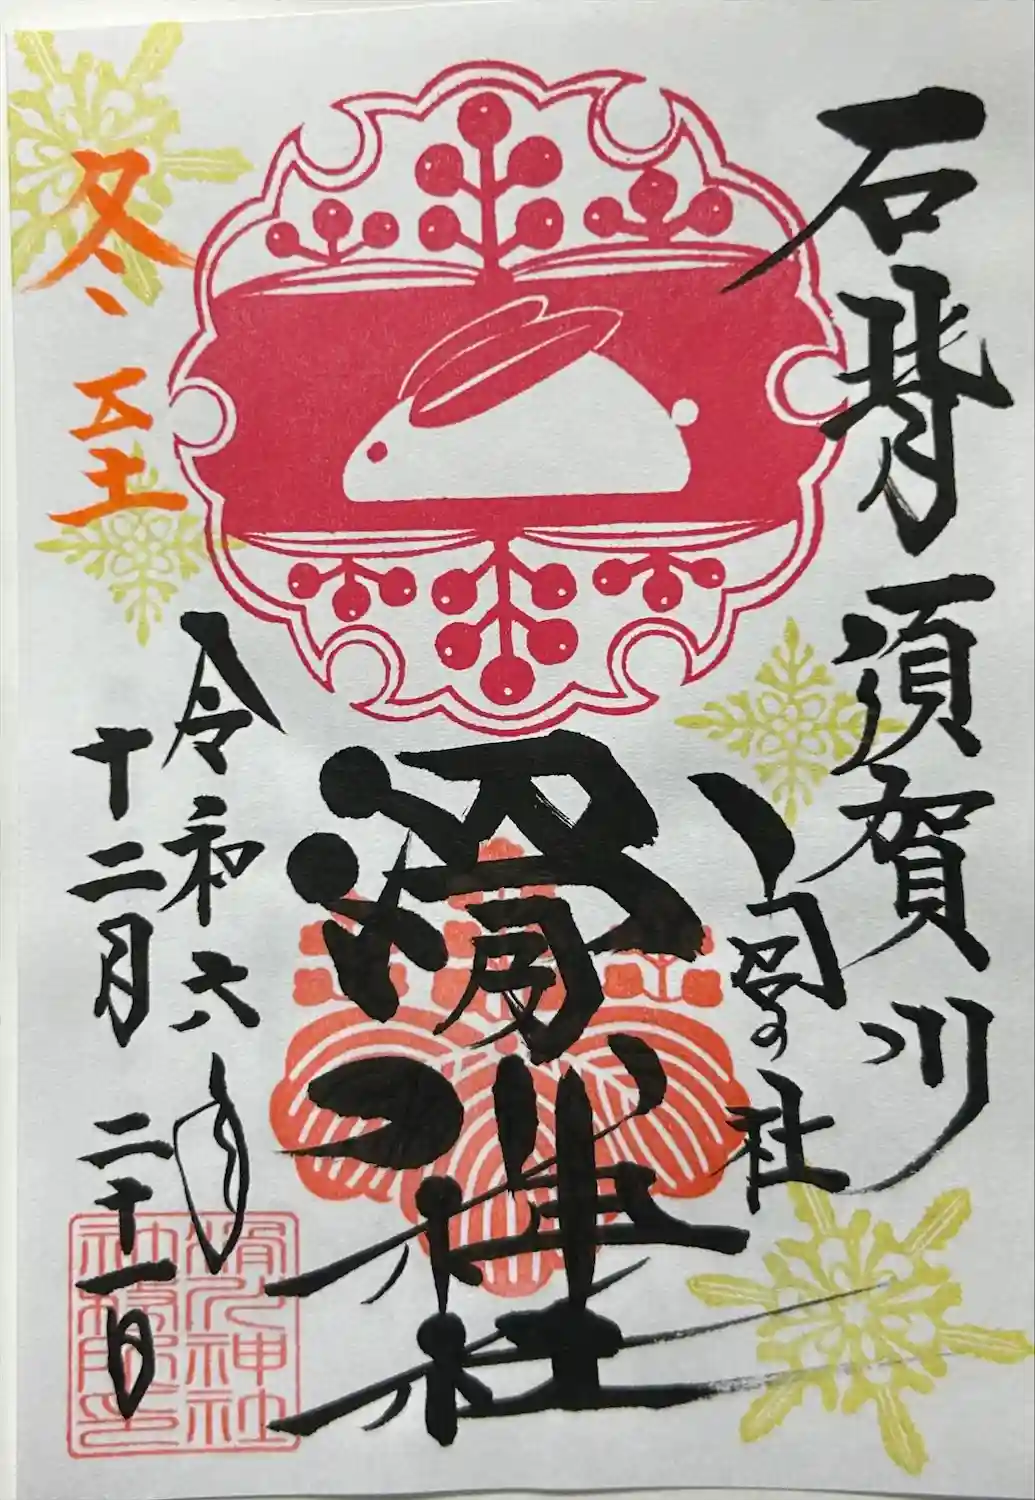 石背 須賀川
の社
滑川神社
令和六年
十二月二十一日
冬至
滑川神社
社務所印